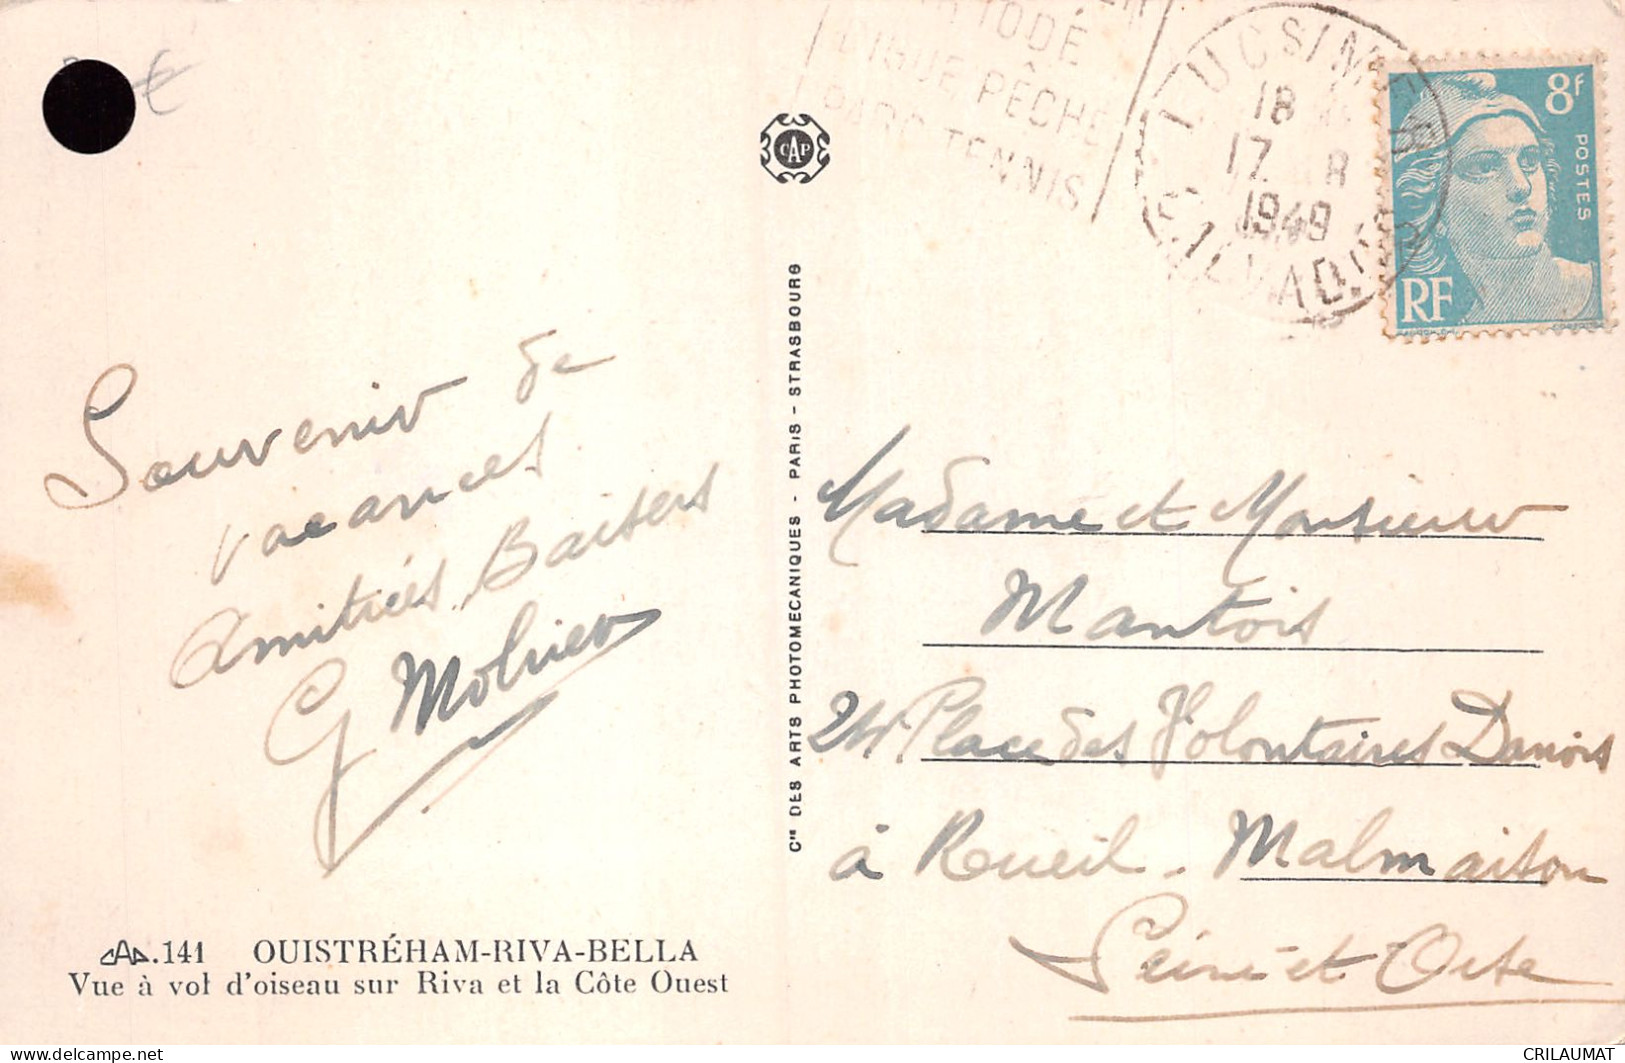 IODÉ
DIGUE PÊCHE
PARC TENNIS
LUC S/MER
18
17 8
1949
CALVADOS
8F
POSTES
RF
CAP
Souvenir de
vacances
Amitiés Baisers
G
Madame et Monsieur
Mantois
Place des Volontaires Danois
à Rueil-Malmaison
Seine-et-Oise
Cie DES ARTS PHOTOMECANIQUES - PARIS - STRASBOURG
CAP.141 OUISTRÉHAM-RIVA-BELLA
Vue à vol d'oiseau sur Riva et la Côte Ouest
CRILAUMAT